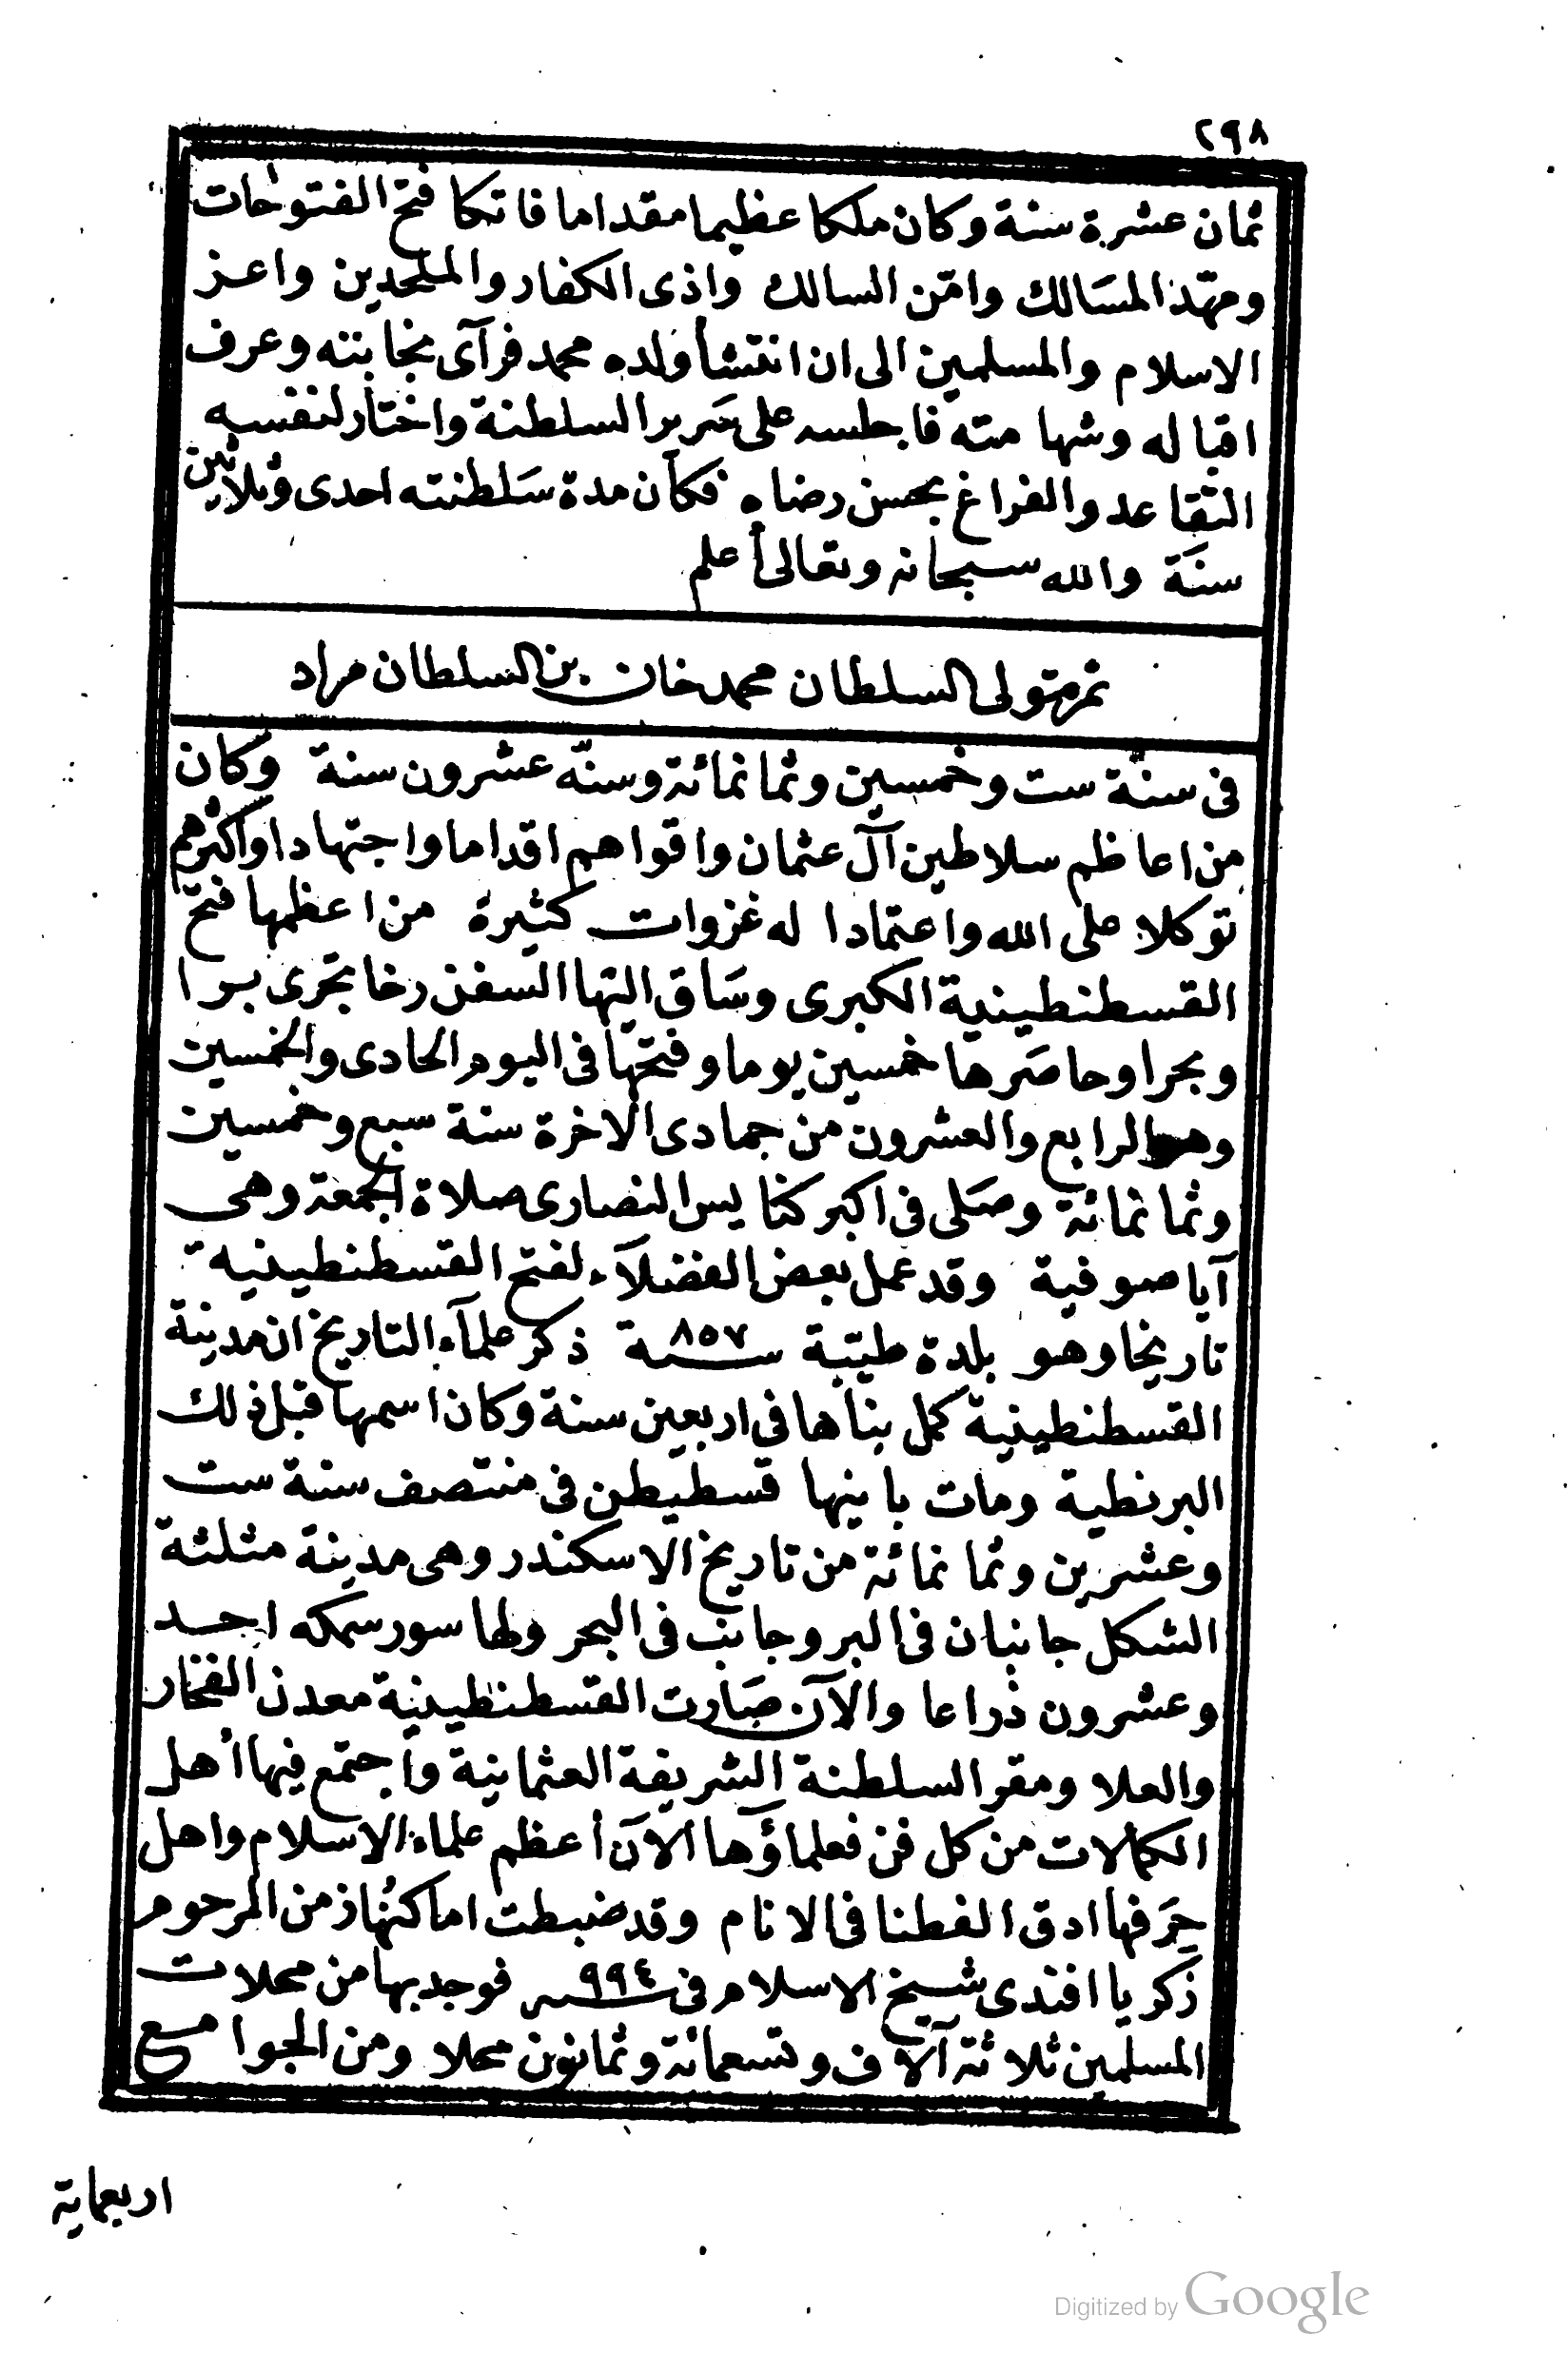 ٢٩٨
ثمان عشرة سنة وكان ملكا عظيما مقداما فاتكا فتح الفتوحات
ومهّد المسَالك وامّن السالك واذى الكفار والملحدين واعز
الاسلام والمسلمين الى ان انتشأ ولده محمد فرآى نجابته وعرف
اقباله وشهامته فاجلسه على سَرير السلطنة واختار لنفسه
التقاعد والفراغ بحسن رضاه فكان مدة سَلطنته احدى وثلاثين
سنَة والله سبحانه وتعالى أعلم
ثم تولى السلطان محمد خان بن السلطان مراد
فى سنة ست وخمسين وثمانمائة وسنّه عشرون سنة وكان
من اعاظم سلاطين آل عثمان واقواهم اقداما واجتهادا واكثرهم
توكلا على الله واعتمادا له غزوات كثيرة من اعظمها فتح
القسطنطينية الكبرى وسَاق اليها السفن رخا تجرى برا
وبحرا وحاصَرها خمسين يوما وفتحها فى اليوم الحادى والخمسين
وهو الرابع والعشرون من جمادى الاخرة سنة سبع وخمسين
وثمانمائة وصَلى فى اكبر كنايس النصارى صلاة الجمعة وهى
آيا صوفية وقد عمل بعض الفضلآء لفتح القسطنطينية
تاريخا وهو بلدة طيّبة سنة ٨٥٧ ذكر علمآء التاريخ ان مدينة
القسطنطينية كمل بناها فى اربعين سنة وكان اسمها قبل ذلك
البرنطية ومات بانيها قسطيطن فى منتصف سنة ست
وعشرين وثمانمائة من تاريخ الاسكندر وهى مدينة مثلثة
الشكل جانبان فى البر وجانب فى البحر ولها سور سمكه احد
وعشرون ذراعا والآن صَارت القسطنطينية معدن الفخار
والعلا ومقر السلطنة الشريفة العثمانية واجتمع فيها أهل
الكمالات من كل فن فعلماؤها الآن أعظم علماء الاسلام واهل
حِرَفها ادق الفطنا فى الانام وقد ضبطت اماكنها زمن المرحوم
زكريا افندى شيخ الاسلام فى سنة ٩٩٤ فوجد بها من محلات
المسلمين ثلاثة آلاف وتسعمائة وثمانون محلا ومن الجوامع
اربعماية
Digitized by Google